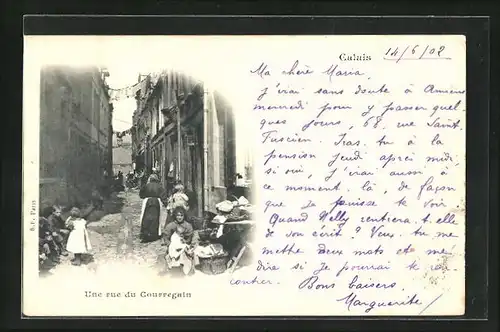 Calais 14/6/02
Ma chère Maria,
J'irai sans doute à Amiens
mercredi pour y passer quel-
ques jours, 68, rue Saint
Fuscien. Iras-tu à la
pension jeudi après midi,
si oui, j'irai aussi à
ce moment-là, de façon
que je puisse te voir
Quand Nelly rentrera-t-elle
de son écrit? Veux-tu me
mettre deux mots et me
dire si je pourrai te ren-
contrer. Bons baisers.
Marguerite
B.F. Paris
Une rue du Courregain